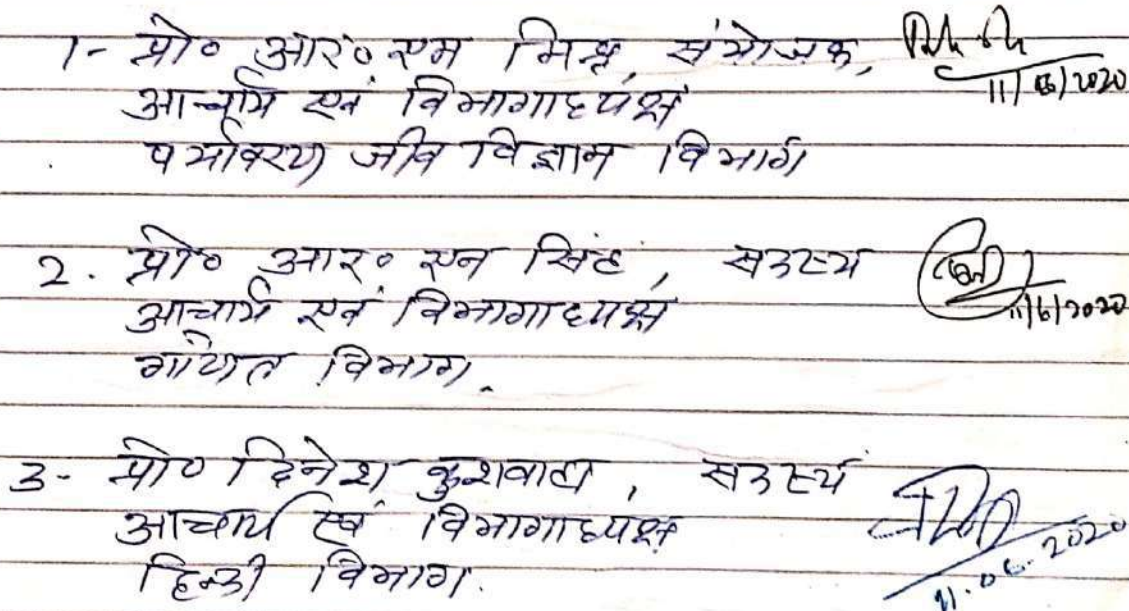 1- प्रो० आर० एम मिश्र, संयोजक,
11/06/2020
आचार्य एवं विभागाध्यक्ष
पर्यावरण जीव विज्ञान विभाग
2. प्रो० आर० एन सिंह, सदस्य
11/6/2020
आचार्य एवं विभागाध्यक्ष
गणित विभाग.
3- प्रो० दिनेश कुशवाह, सदस्य
आचार्य एवं विभागाध्यक्ष
11.06.2020
हिन्दी विभाग.